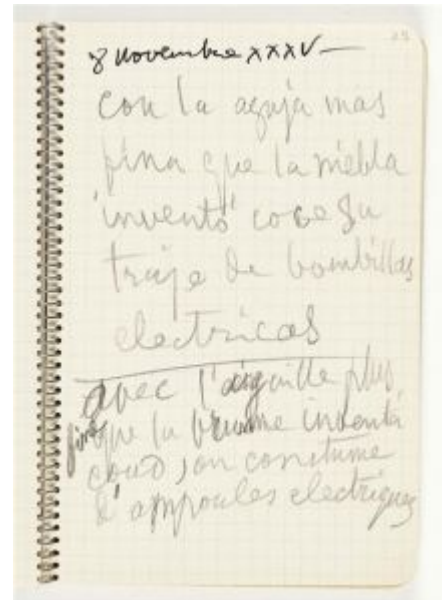 8 novembre XXXV—
con la aguja mas
fina que la niebla
inventó cose su
traje de bombillas
electricas
avec l'aiguille plus
fine que la brume inventa
coud son constume
d'ampoules electriques